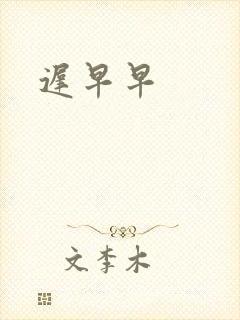 遲早早
文李木